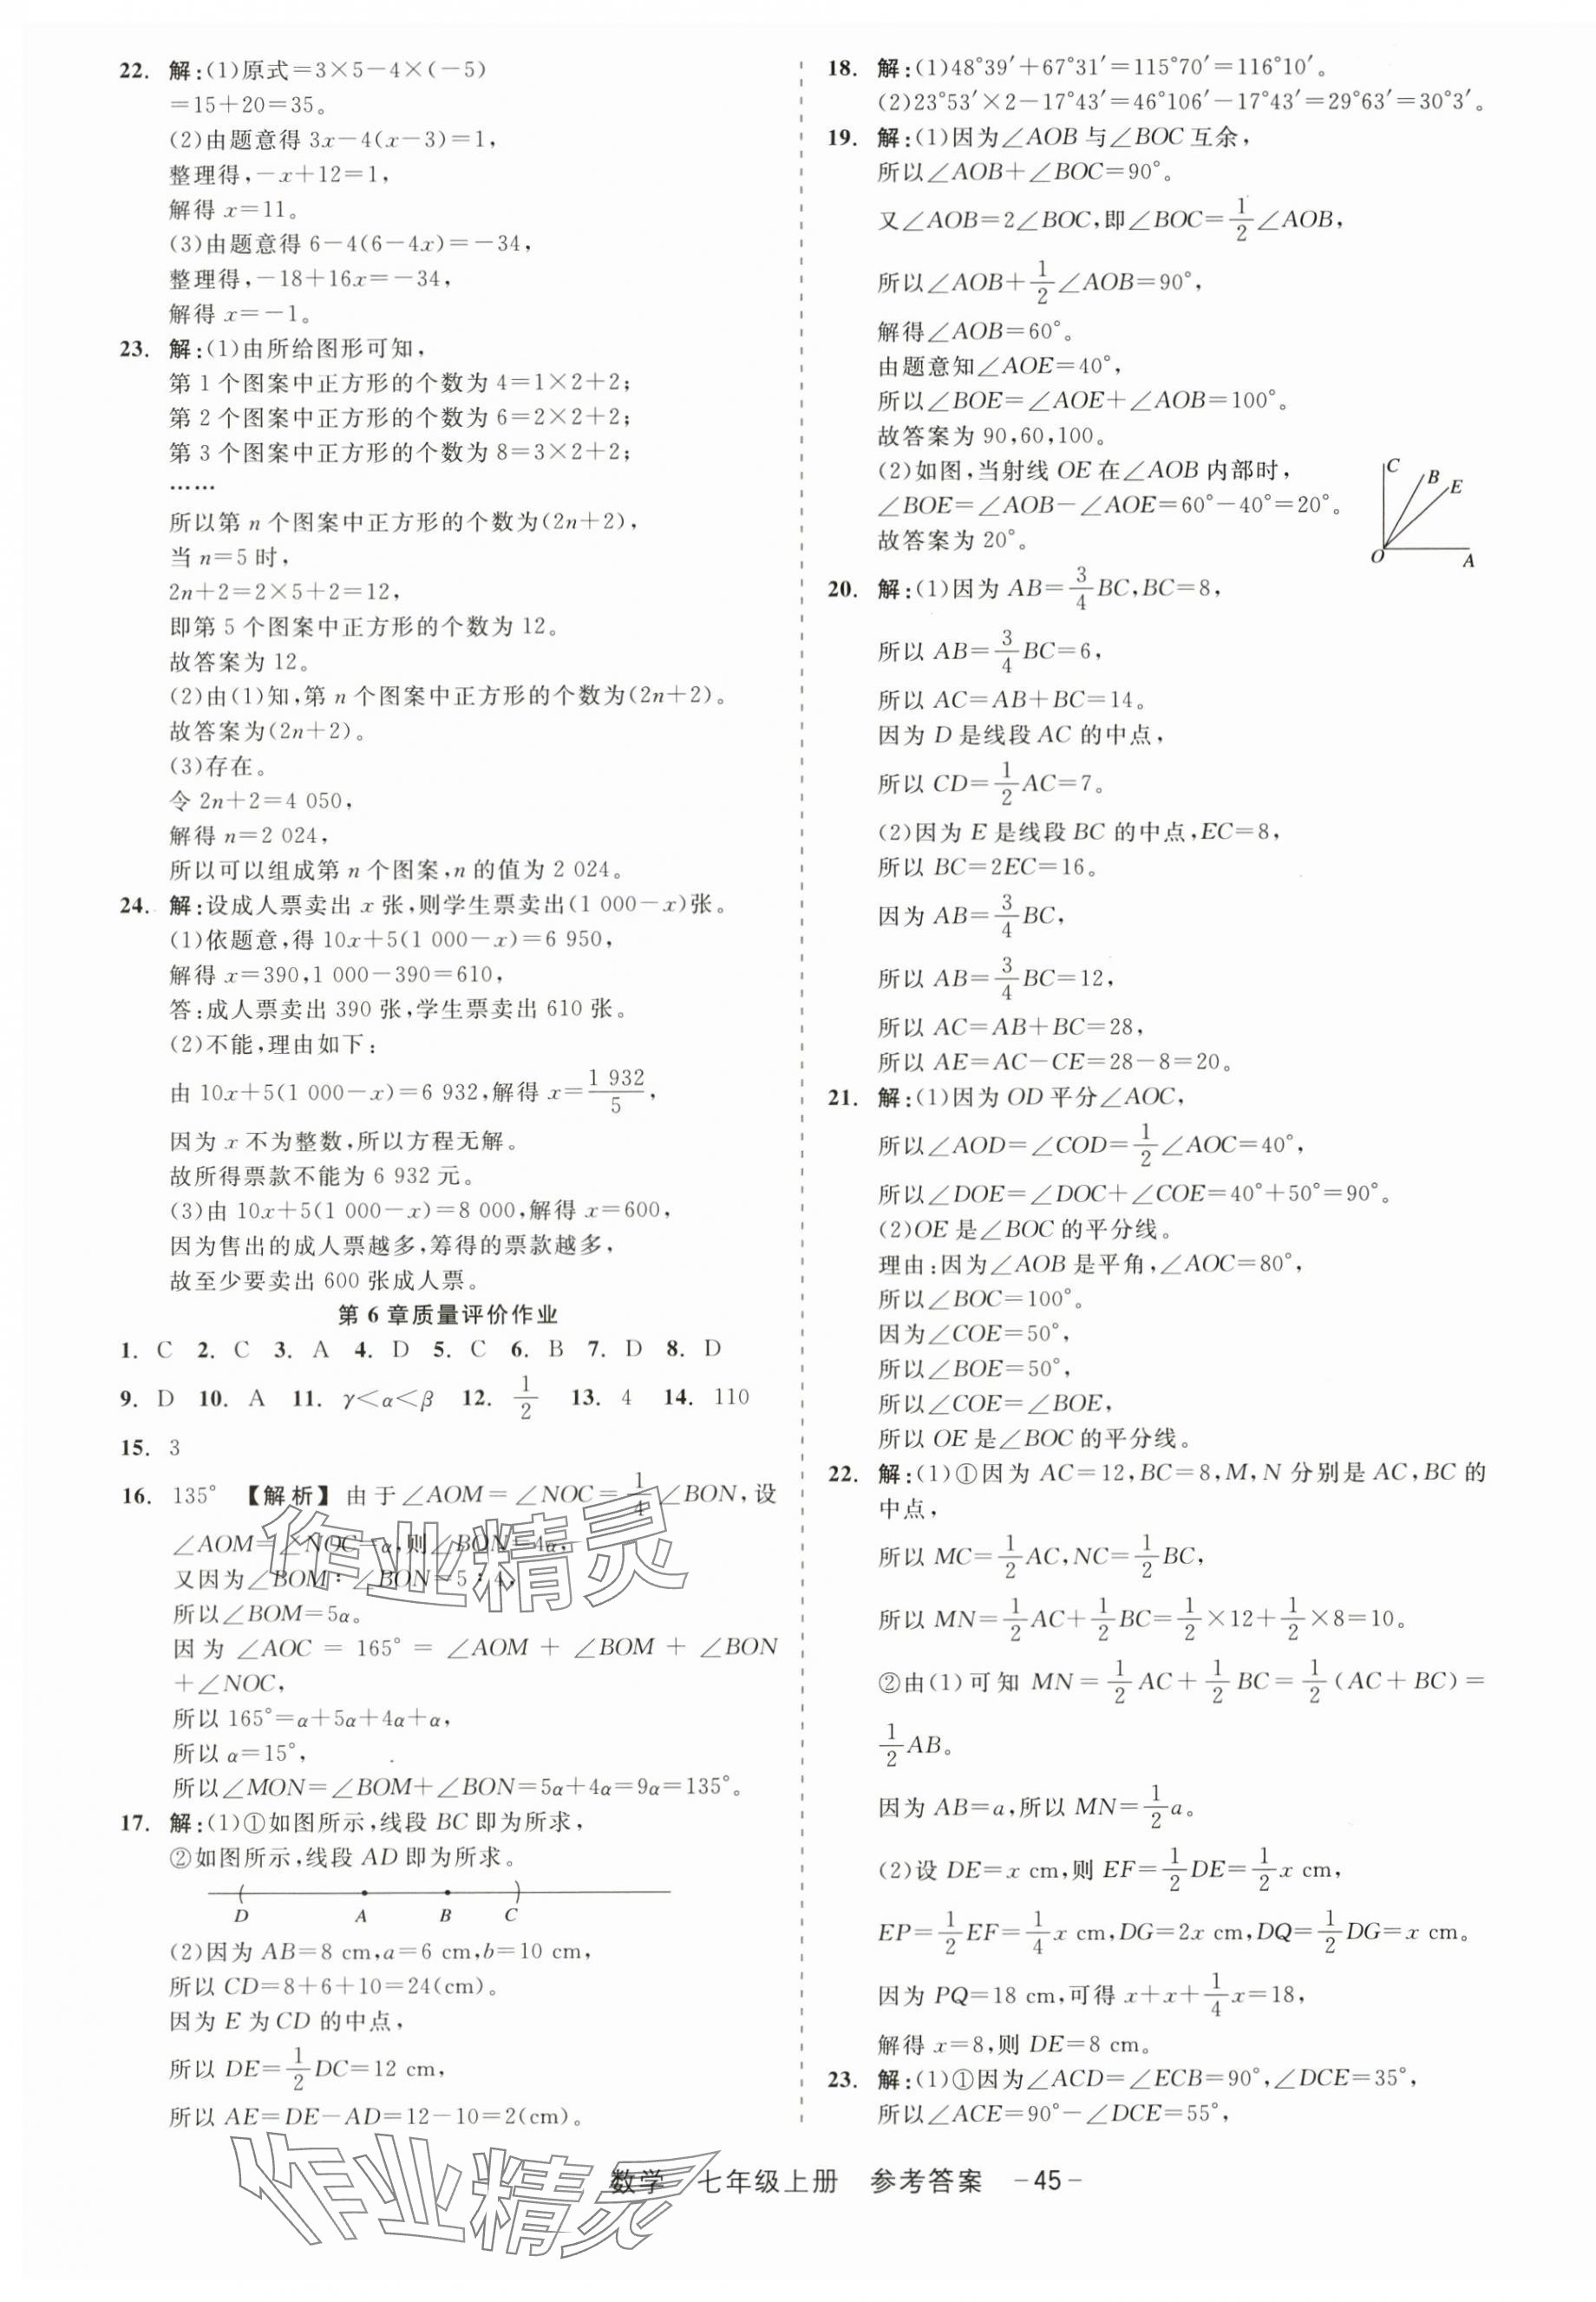 22. 解:(1)原式=3×5-4×(-5)
=15+20=35。
(2)由题意得 3x-4(x-3)=1,
整理得,-x+12=1,
解得 x=11。
(3)由题意得 6-4(6-4x)=-34,
整理得,-18+16x=-34,
解得 x=-1。
23. 解:(1)由所给图形可知,
第 1 个图案中正方形的个数为 4=1×2+2;
第 2 个图案中正方形的个数为 6=2×2+2;
第 3 个图案中正方形的个数为 8=3×2+2;
……
所以第 n 个图案中正方形的个数为(2n+2),
当 n=5 时,
2n+2=2×5+2=12,
即第 5 个图案中正方形的个数为 12。
故答案为 12。
(2)由(1)知,第 n 个图案中正方形的个数为(2n+2)。
故答案为(2n+2)。
(3)存在。
令 2n+2=4 050,
解得 n=2 024,
所以可以组成第 n 个图案,n 的值为 2 024。
24. 解:设成人票卖出 x 张,则学生票卖出(1 000-x)张。
(1)依题意,得 10x+5(1 000-x)=6 950,
解得 x=390,1 000-390=610,
答:成人票卖出 390 张,学生票卖出 610 张。
(2)不能,理由如下:
由 10x+5(1 000-x)=6 932,解得 x=1 932/5,
因为 x 不为整数,所以方程无解。
故所得票款不能为 6 932 元。
(3)由 10x+5(1 000-x)=8 000,解得 x=600,
因为售出的成人票越多,筹得的票款越多,
故至少要卖出 600 张成人票。
第 6 章质量评价作业
1. C 2. C 3. A 4. D 5. C 6. B 7. D 8. D
9. D 10. A 11. γ<α<β 12. 1/2 13. 4 14. 110
15. 3
16. 135° 【解析】由于∠AOM=∠NOC=1/4∠BON,设
∠AOM=∠NOC=α,则∠BON=4α,
又因为∠BOM:∠BON=5:4,
所以∠BOM=5α。
因为 ∠AOC = 165° = ∠AOM + ∠BOM + ∠BON
+∠NOC,
所以 165°=α+5α+4α+α,
所以 α=15°,
所以∠MON=∠BOM+∠BON=5α+4α=9α=135°。
17. 解:(1)①如图所示,线段 BC 即为所求,
②如图所示,线段 AD 即为所求。
D A B C
(2)因为 AB=8 cm,a=6 cm,b=10 cm,
所以 CD=8+6+10=24(cm)。
因为 E 为 CD 的中点,
所以 DE=1/2DC=12 cm,
所以 AE=DE-AD=12-10=2(cm)。
18. 解:(1)48°39′+67°31′=115°70′=116°10′。
(2)23°53′×2-17°43′=46°106′-17°43′=29°63′=30°3′。
19. 解:(1)因为∠AOB 与∠BOC 互余,
所以∠AOB+∠BOC=90°。
又∠AOB=2∠BOC,即∠BOC=1/2∠AOB,
所以∠AOB+1/2∠AOB=90°,
解得∠AOB=60°。
由题意知∠AOE=40°,
所以∠BOE=∠AOE+∠AOB=100°。
故答案为 90,60,100。
(2)如图,当射线 OE 在∠AOB 内部时,
∠BOE=∠AOB-∠AOE=60°-40°=20°。
故答案为 20°。
C B E O A
20. 解:(1)因为 AB=3/4BC,BC=8,
所以 AB=3/4BC=6,
所以 AC=AB+BC=14。
因为 D 是线段 AC 的中点,
所以 CD=1/2AC=7。
(2)因为 E 是线段 BC 的中点,EC=8,
所以 BC=2EC=16。
因为 AB=3/4BC,
所以 AB=3/4BC=12,
所以 AC=AB+BC=28,
所以 AE=AC-CE=28-8=20。
21. 解:(1)因为 OD 平分∠AOC,
所以∠AOD=∠COD=1/2∠AOC=40°,
所以∠DOE=∠DOC+∠COE=40°+50°=90°。
(2)OE 是∠BOC 的平分线。
理由:因为∠AOB 是平角,∠AOC=80°,
所以∠BOC=100°。
因为∠COE=50°,
所以∠BOE=50°,
所以∠COE=∠BOE,
所以 OE 是∠BOC 的平分线。
22. 解:(1)①因为 AC=12,BC=8,M,N 分别是 AC,BC 的
中点,
所以 MC=1/2AC,NC=1/2BC,
所以 MN=1/2AC+1/2BC=1/2×12+1/2×8=10。
②由(1)可知 MN=1/2AC+1/2BC=1/2(AC+BC)=
1/2AB。
因为 AB=a,所以 MN=1/2a。
(2)设 DE=x cm,则 EF=1/2DE=1/2x cm,
EP=1/2EF=1/4x cm,DG=2x cm,DQ=1/2DG=x cm。
因为 PQ=18 cm,可得 x+x+1/4x=18,
解得 x=8,则 DE=8 cm。
23. 解:(1)①因为∠ACD=∠ECB=90°,∠DCE=35°,
所以∠ACE=90°-∠DCE=55°,
数学 七年级上册 参考答案 -45-
作业精灵
作业精灵